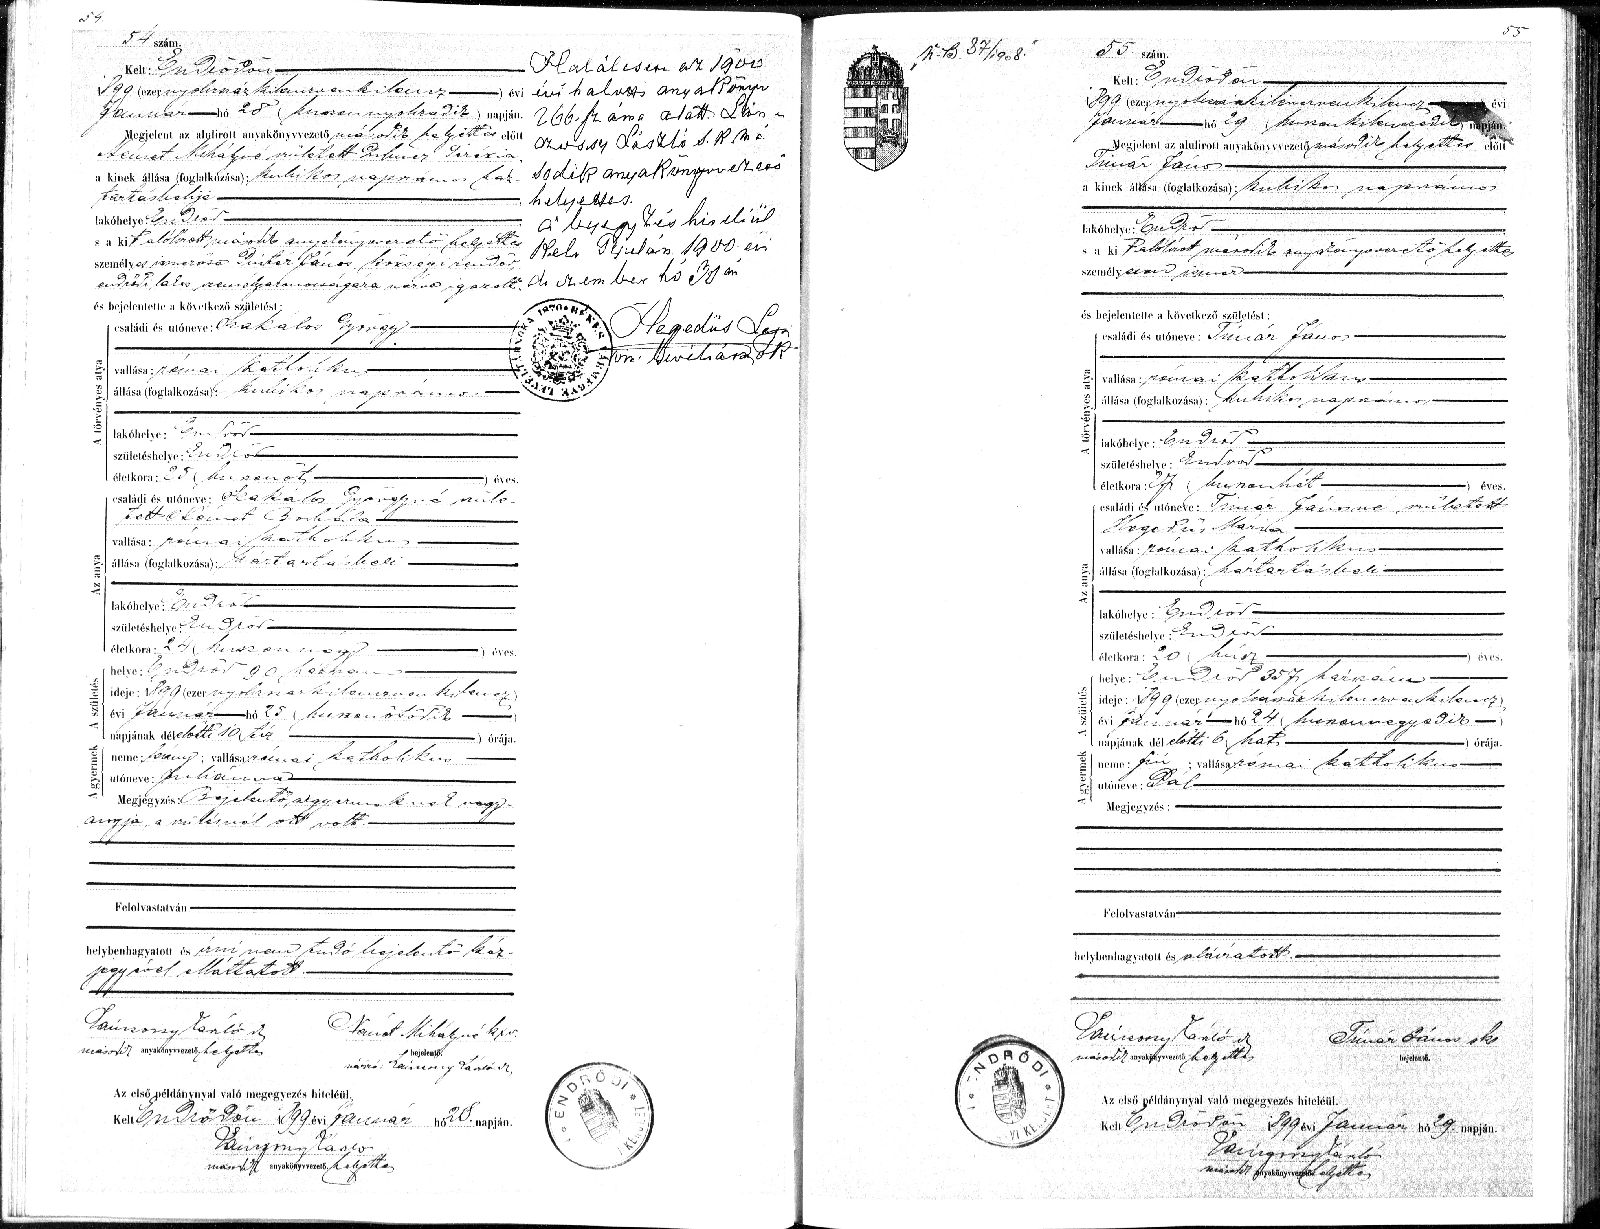 54
54 szám.
Kelt: Endrődön
899 (ezernyolczszázkilenczvenkilencz) évi
Január hó 28 (huszonnyolczadik) napján.
Megjelent az alulirott anyakönyvvezető második helyettes előtt
Német Mihályné született
a kinek állása (foglalkozása): kubikos napszámos ház-
tartásbelije
lakóhelye: Endrőd
s a kit alólirott második anyakönyvvezető helyettes
személyes Pintér János községi rendőr
endrődi lakos személyazonosságára nézve igazolt
és bejelentette a következő születést:
A törvényes atya
családi és utóneve: Szakalos György
vallása: római katholikus
állása (foglalkozása): kubikos napszámos
lakóhelye: Endrőd
születéshelye: Endrőd
életkora: 25 (huszonöt) éves.
Az anya
családi és utóneve: Szakalos Györgyné szüle-
tett Német Borbála
vallása: római katholikus
állása (foglalkozása): háztartásbeli
lakóhelye: Endrőd
születéshelye: Endrőd
életkora: 24 (huszonnégy) éves.
A születés
helye: Endrőd 90 házszám
ideje: 899 (ezernyolczszázkilenczvenkilencz)
évi Január hó 25 (huszonötödik)
napjának délelőtti 10 (tíz) órája.
A gyermek
neme: leány; vallása: római katholikus
utóneve: Juliánna
Megjegyzés: Bejelentő, a gyermeknek nagy-
anyja, a szülésnél ott volt.
Felolvastatván
helybenhagyatott és írni nem tudó bejelentő kéz-
jegyével elláttatott.
Lánczossy László s. k. Német Mihályné kzv.
második anyakönyvvezető helyettes bejelentő.
Lánczossy László s. k.
Az első példánynyal való megegyezés hiteléül.
Kelt Endrődön 899 évi Január hó 28. napján.
Lánczossy László
második anyakönyvvezető helyettes
Halálesete az 1900
évi halotti anyakönyv
266. száma alatt Lán-
czossy László s. k. má-
sodik anyakönyvvezető
helyettes.
A bejegyzés hiteléül
Kelt Gyulán, 1900. évi
deczember hó 31 én
Hegedűs
BÉKÉS VÁRMEGYE LEVÉLTÁRNOKA 1870
ENDRŐDI
55
K.B. 37/1908.
55 szám.
Kelt: Endrődön
899 (ezernyolczszázkilenczvenkilencz) évi
Január hó 29 (huszonkilenczedik) napján.
Megjelent az alulirott anyakönyvvezető második helyettes előtt
Tímár János
a kinek állása (foglalkozása): kubikos napszámos
lakóhelye: Endrőd
s a kit alólirott második anyakönyvvezető helyettes
személyesen ismer
és bejelentette a következő születést:
A törvényes atya
családi és utóneve: Tímár János
vallása: római katholikus
állása (foglalkozása): kubikos napszámos
lakóhelye: Endrőd
születéshelye: Endrőd
életkora: 27 (huszonhét) éves.
Az anya
családi és utóneve: Tímár Jánosné született
Hegedűs Mária
vallása: római katholikus
állása (foglalkozása): háztartásbeli
lakóhelye: Endrőd
születéshelye: Endrőd
életkora: 20 (húsz) éves.
A születés
helye: Endrőd 357 házszám
ideje: 899 (ezernyolczszázkilenczvenkilencz)
évi Január hó 24 (huszonnegyedik)
napjának délelőtti 6 (hat) órája.
A gyermek
neme: fiú; vallása: római katholikus
utóneve: Pál
Megjegyzés:
Felolvastatván
helybenhagyatott és aláíratott.
Lánczossy László s. k. Tímár János sk.
második anyakönyvvezető helyettes bejelentő.
Az első példánynyal való megegyezés hiteléül.
Kelt Endrődön 899 évi Január hó 29. napján.
Lánczossy László
második anyakönyvvezető helyettes
ENDRŐDI